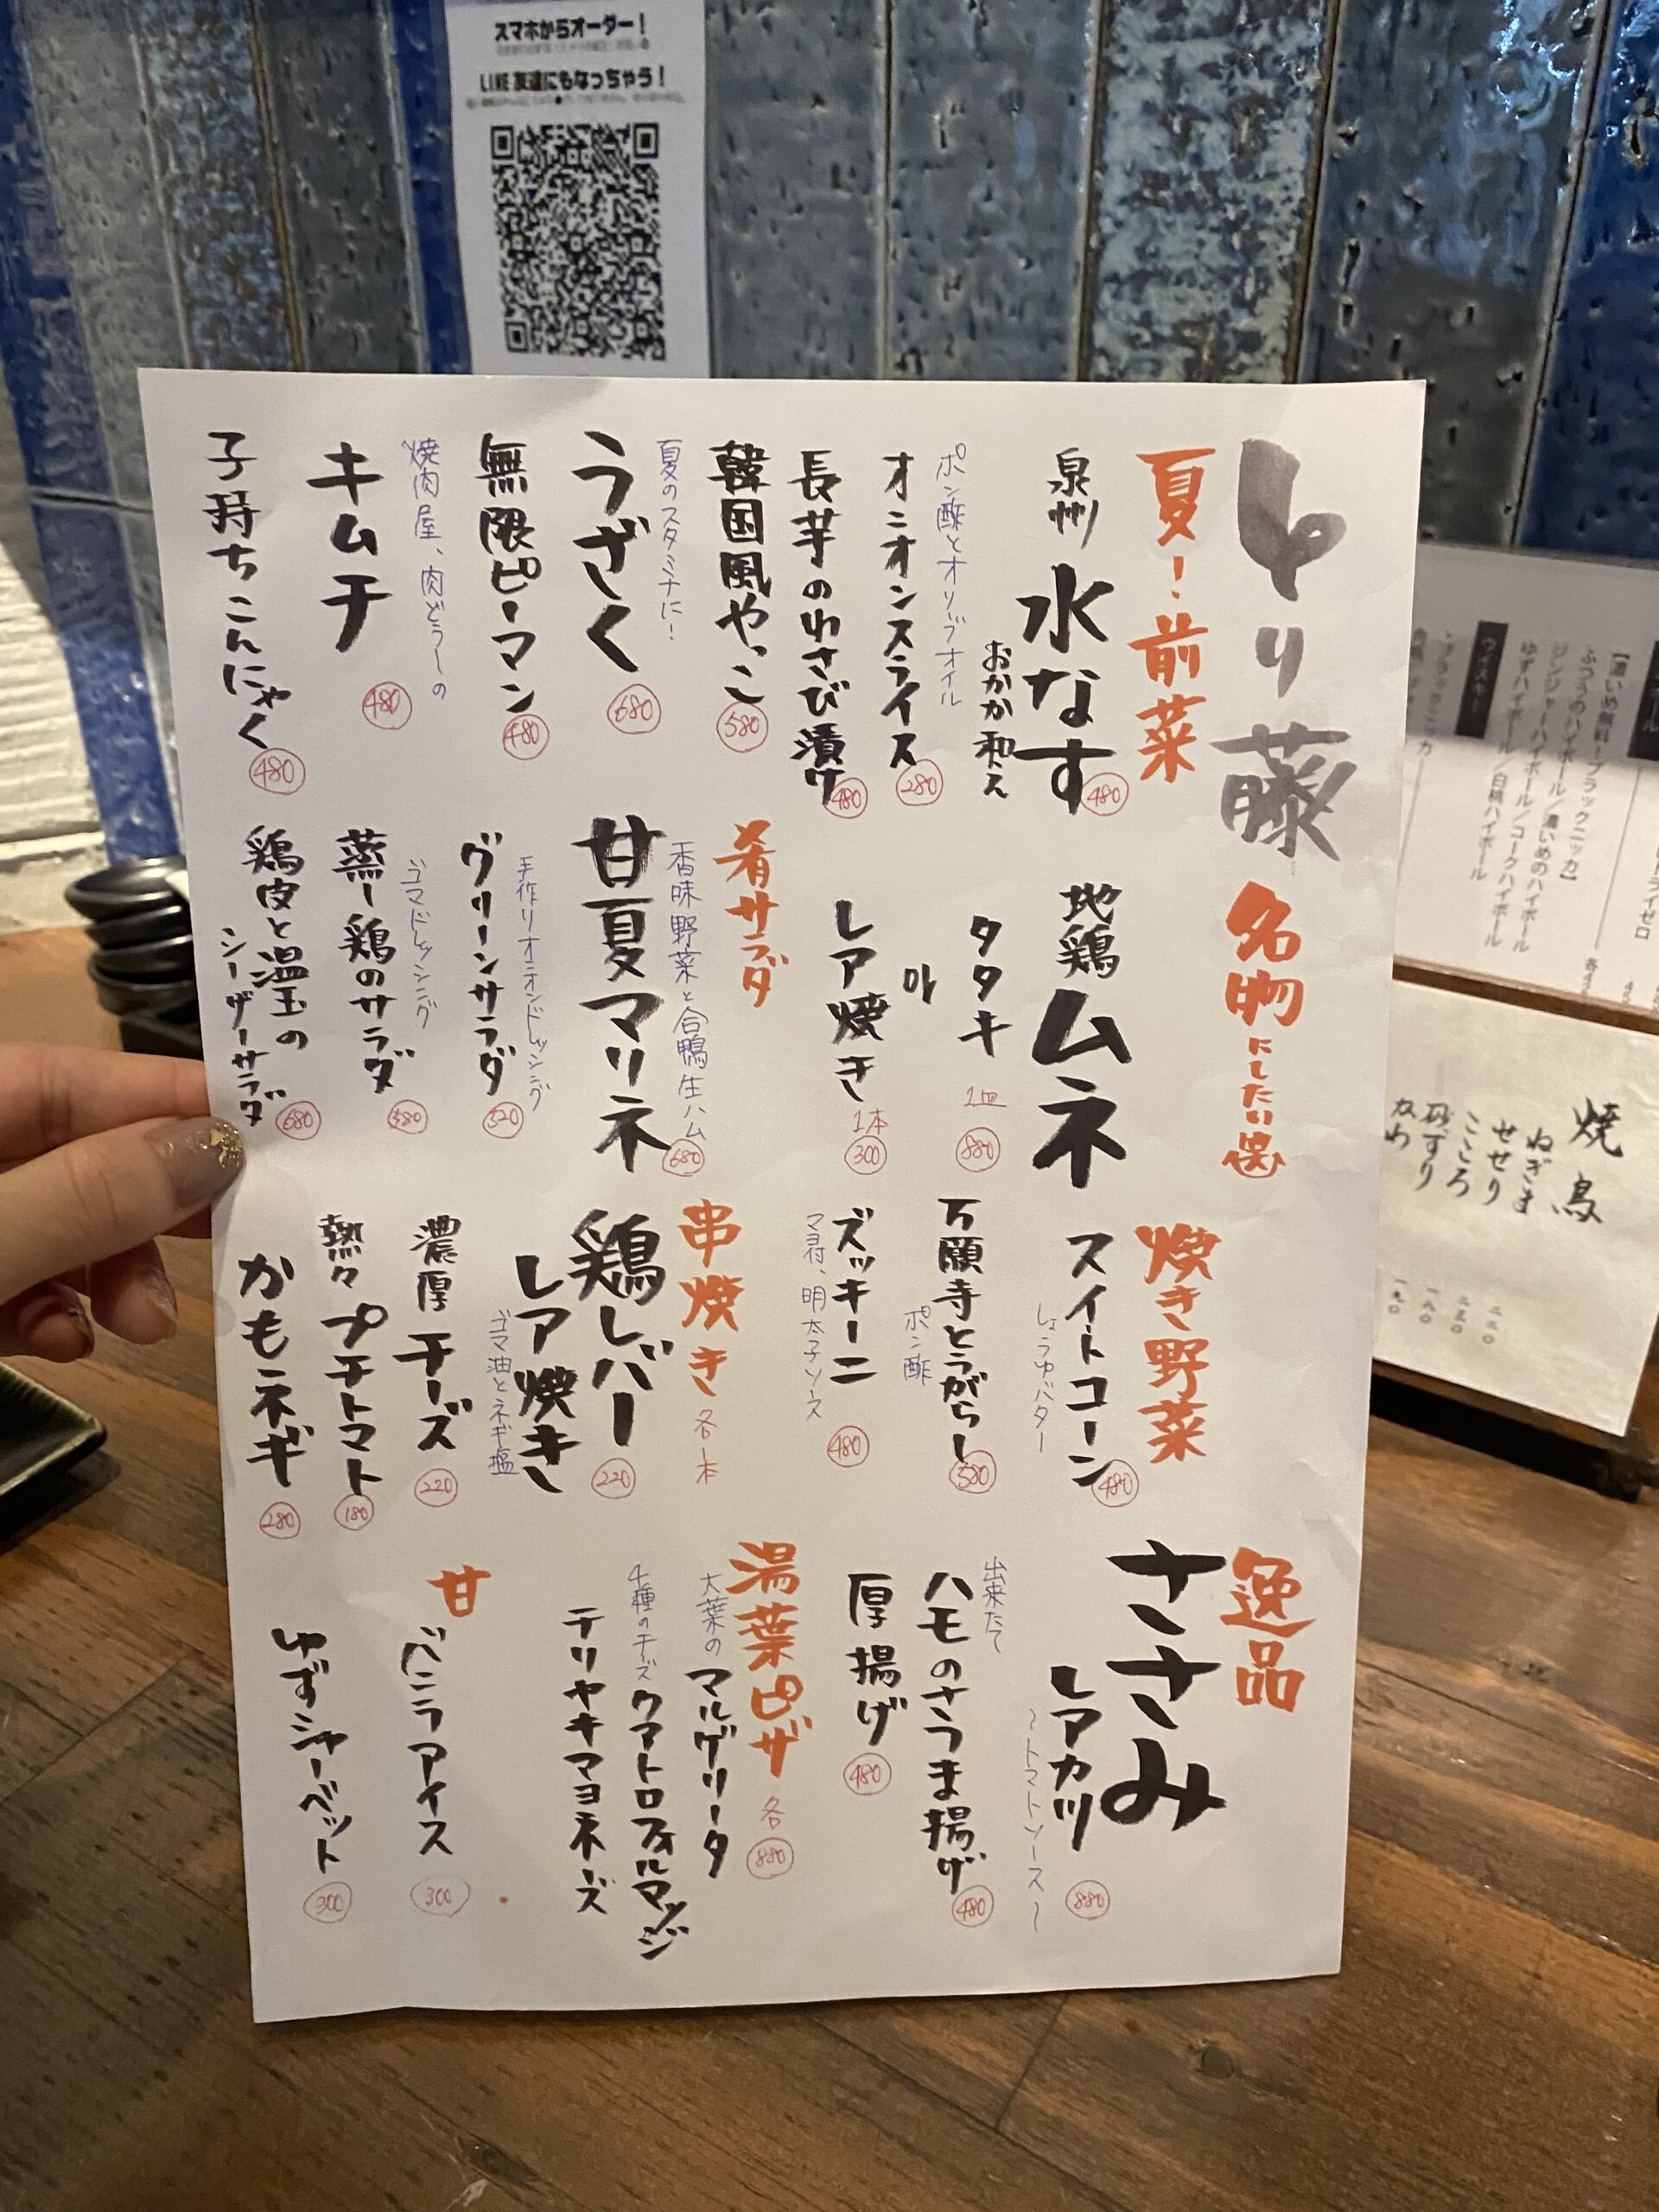 スマホからオーダー！
LINE 友達にもなっちゃう！
とり藤
夏！前菜
泉州 水なす
おかか和え
480
ポン酢とオリーブオイル
オニオンスライス
280
長芋のわさび漬け
480
韓国風やっこ
580
夏のスタミナに！
うざく
680
無限ピーマン
480
焼肉屋、肉どうしの
キムチ
480
子持ちこんにゃく
480
名物にしたい(笑)
地鶏ムネ
タタキ
1皿
880
or
レア焼き
1本
300
肴サラダ
香味野菜と合鴨生ハム
甘夏マリネ
680
手作りオニオンドレッシング
グリーンサラダ
520
ゴマドレッシング
蒸し鶏のサラダ
580
鶏皮と温玉の
シーザーサラダ
680
焼き野菜
スイートコーン
しょうゆバター
480
万願寺とうがらし
ポン酢
580
ズッキーニ
マヨ付、明太子ソース
480
串焼き 各1本
鶏レバー
レア焼き
220
ゴマ油とネギ塩
濃厚チーズ
220
熱々プチトマト
180
かもネギ
280
逸品
ささみ
レアカツ
〜トマトソース〜
880
出来たて
ハモのさつま揚げ
480
厚揚げ
480
湯葉ピザ 各
880
大葉のマルゲリータ
4種のチーズ クアトロフォルマッジ
テリヤキマヨネーズ
甘
バニラアイス
300
ゆずシャーベット
300
【濃いめ無料！ブラックニッカ】
ふつうのハイボール／濃いめのハイボール
ジンジャーハイボール／コークハイボール
ゆずハイボール／白桃ハイボール
ウイスキー
焼鳥
ねぎま
せせり
こころ
砂ずり
かわ
二二〇
二五〇
一八〇
一九〇